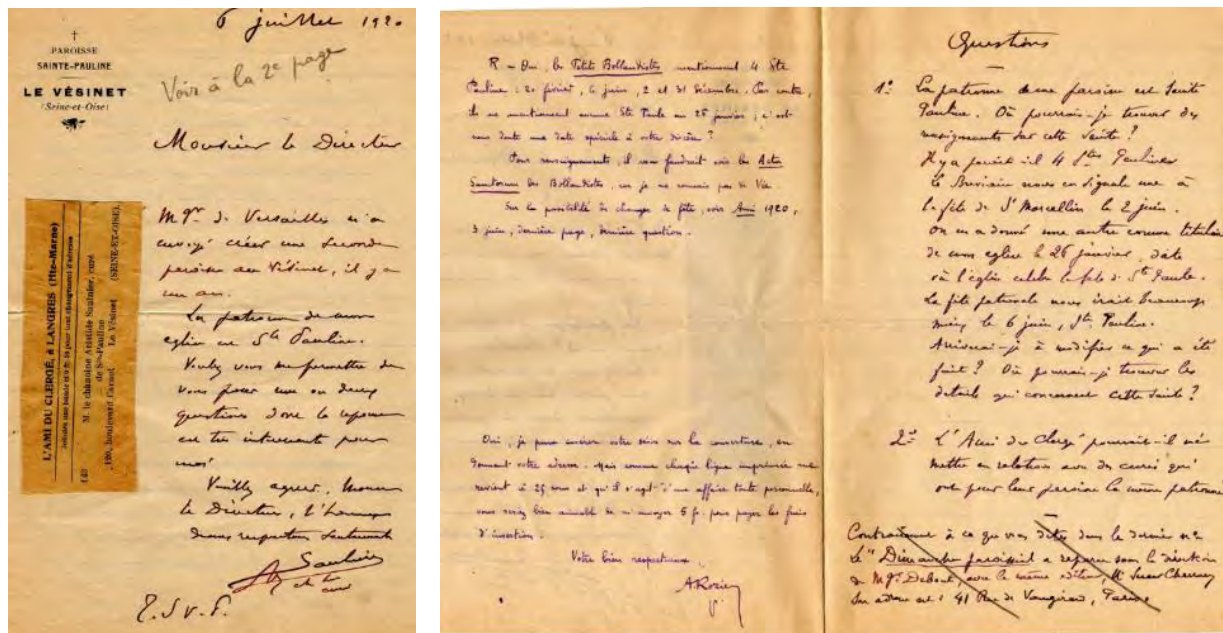 6 juillet 1920
†
PAROISSE
SAINTE-PAULINE
LE VÉSINET
(Seine-et-Oise)
Voir à la 2e page
Monsieur le Directeur
Mgr de Versailles m'a
envoyé créer une seconde
paroisse au Vésinet, il y a
un an.
La patronne de mon
église est Ste Pauline.
Voulez vous me permettre de
vous poser une ou deux
questions dont la réponse
est très intéressante pour
moi
Veuillez agréer, Monsieur
le Directeur, l'hommage
de mes respectueux sentiments
A Saulnier
ch cur
T.S.V.P.
L'AMI DU CLERGÉ, à LANGRES (Hte-Marne)
Joindre une bande et 0 fr. 50 pour tout changement d'adresse
M. le chanoine Aristide Saulnier, curé
de Ste-Pauline
120, boulevard Carnot Le Vésinet (SEINE-ET-OISE).
R – Oui, les Petits Bollandistes mentionnent 4 Ste
Pauline : 20 février, 6 juin, 2 et 31 décembre. Par contre,
ils ne mentionnent aucune Ste Paule au 25 janvier ; c'est
sans doute une date spéciale à votre diocèse ?
Pour renseignements, il vous faudrait voir les Acta
Sanctorum des Bollandistes, car je ne connais pas de Vie.
Sur la possibilité de changer de fête, voir Ami 1920,
3 juin, dernière page, dernière question.
Oui, je peux insérer votre avis sur la couverture, en
donnant votre adresse. Mais comme chaque ligne imprimée me
revient à 25 sous et qu'il s'agit d'une affaire toute personnelle,
vous seriez bien aimable de m'envoyer 5 f. pour payer les frais
d'insertion.
Votre bien respectueux,
A Rozier
Questions
1º La patronne de ma paroisse est Sainte
Pauline. Où pourrais-je trouver des
renseignements sur cette Sainte ?
Il y a paraît-il 4 Stes Paulines
le Bréviaire nous en signale une à
la fête de St Marcellin le 2 juin.
On en a donné une autre comme titulaire
de mon église le 26 janvier, date
où l'église célèbre la fête de Ste Paule.
La fête patronale nous irait beaucoup
mieux le 6 juin, Ste Pauline.
à modifier ce qui a été
fait ? Où pourrais-je trouver les
détails qui concernent cette Sainte ?
2º L'Ami du Clergé pourrait-il me
mettre en relation avec des curés qui
ont pour leur paroisse la même patronne
Contrairement à ce que vous dites dans le dernier nº
Le "Dimanche paroissial" a reparu sous la direction
de Mgr Debout, avec le même éditeur, M.
Son adresse est : 41 Rue de Vaugirard, Paris